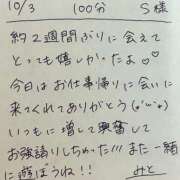 10/3 100分 S様
約2週間ぶりに会えて
とっても嬉しかったよ♡
今日はお仕事帰りに会いに
来てくれてありがとう(*'ω'*)
いつもに増して興奮して
お強請りしちゃった!!!また一緒
に遊ぼうね!! みと